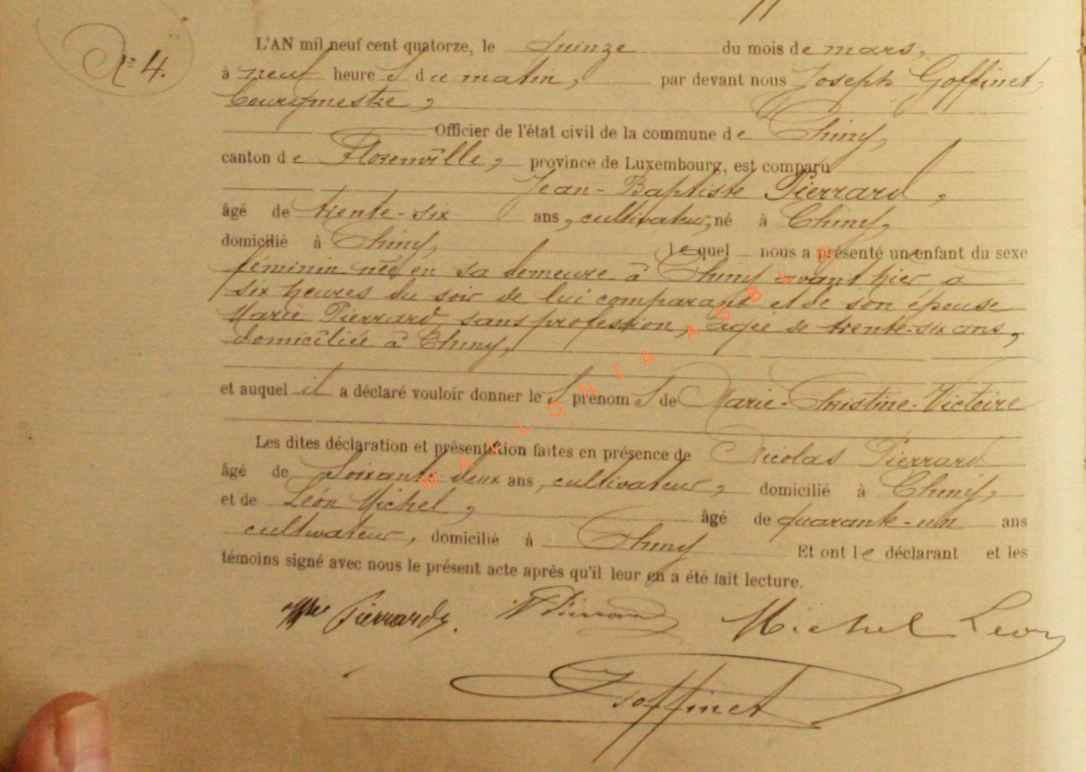 N° 4.
L'AN mil neuf cent quatorze, le quinze du mois de mars,
à neuf heures du matin, par devant nous Joseph Goffinet,
bourgmestre,
Officier de l'état civil de la commune de Chiny,
canton de Florenville, province de Luxembourg, est comparu
Jean-Baptiste Pierrard,
âgé de trente-six ans, cultivateur, né à Chiny,
domicilié à Chiny, lequel nous a présenté un enfant du sexe
féminin née en sa demeure à Chiny avant hier à
six heures du soir de lui comparant et de son épouse
Marie Pierrard sans profession, âgée de trente-six ans,
domiciliée à Chiny,
et auquel il a déclaré vouloir donner les prénoms de Marie-Christine-Victoire
Les dites déclaration et présentation faites en présence de Nicolas Pierrard
âgé de soixante-deux ans, cultivateur, domicilié à Chiny,
et de Léon Michel, âgé de quarante-un ans
cultivateur, domicilié à Chiny Et ont le déclarant et les
témoins signé avec nous le présent acte après qu'il leur en a été fait lecture.
Pierrard. N Pierrard Michel Léon
J Goffinet
WALLONIA ASBL ©